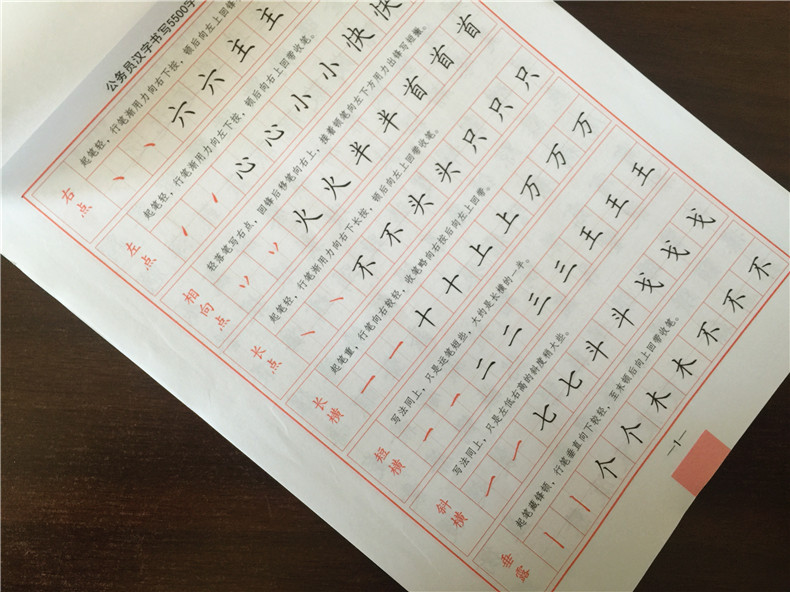 公务员汉字书写5500字
起笔轻，行笔渐用力向右下按，顿后向左上回锋
右点 六 六 主 主
起笔轻，行笔渐用力向左下按，顿后向右上回带收笔。
左点 心 心 小 小 快 快
轻落笔写右点，回锋后移笔向右上，接着顿笔向左下方用力出锋写短撇。
相向点 火 火 半 半 首 首 首
起笔轻，行笔渐用力向右下长按，顿后向左上回带收笔。
长点 不 不 头 头 只 只 只
起笔重，行笔向右较轻，收笔略向右按后向左上回带。
长横 一 一 十 十 上 上 万 万 万
写法同上，只是运笔短些，大约是长横的一半。
短横 一 一 二 二 三 三 王 王 王
写法同上，只是左低右高的斜度稍大些。
斜横 一 一 七 七 斗 斗 戈 戈 戈
起笔藏锋顿，行笔垂直向下较轻，至末顿后向上回带收笔。
垂露 丨 丨 个 个 木 木 不 不 不
—1—